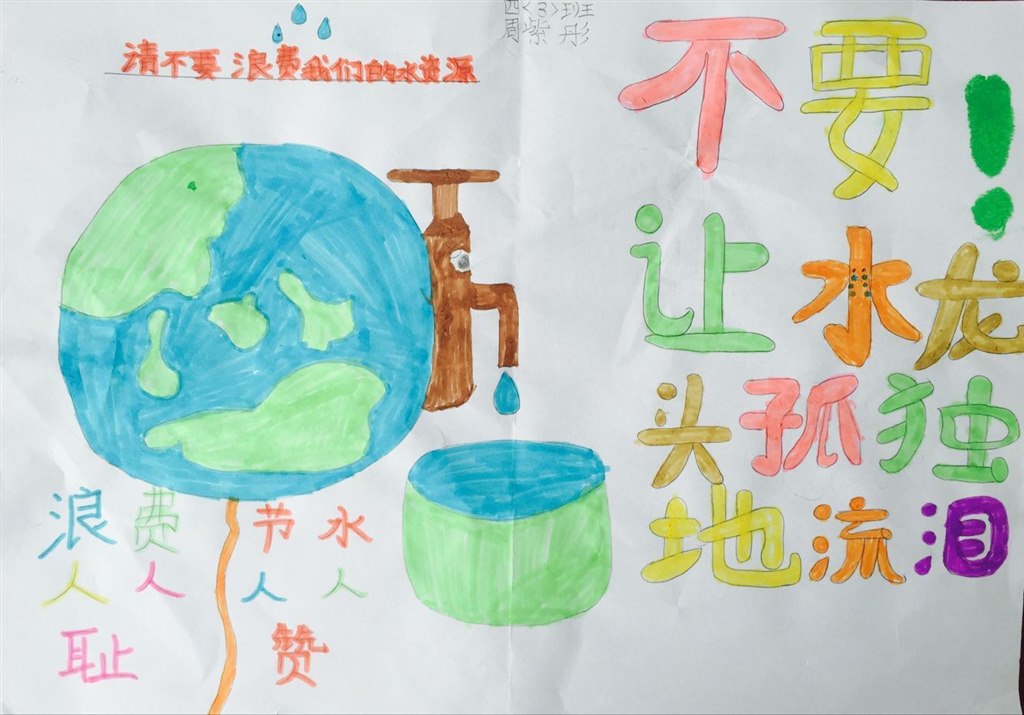 四(3)班
周紫彤
请不要浪费我们的水资源
不要!
让水龙
头孤独
地流泪
浪费 节水
人人 人人
耻 赞